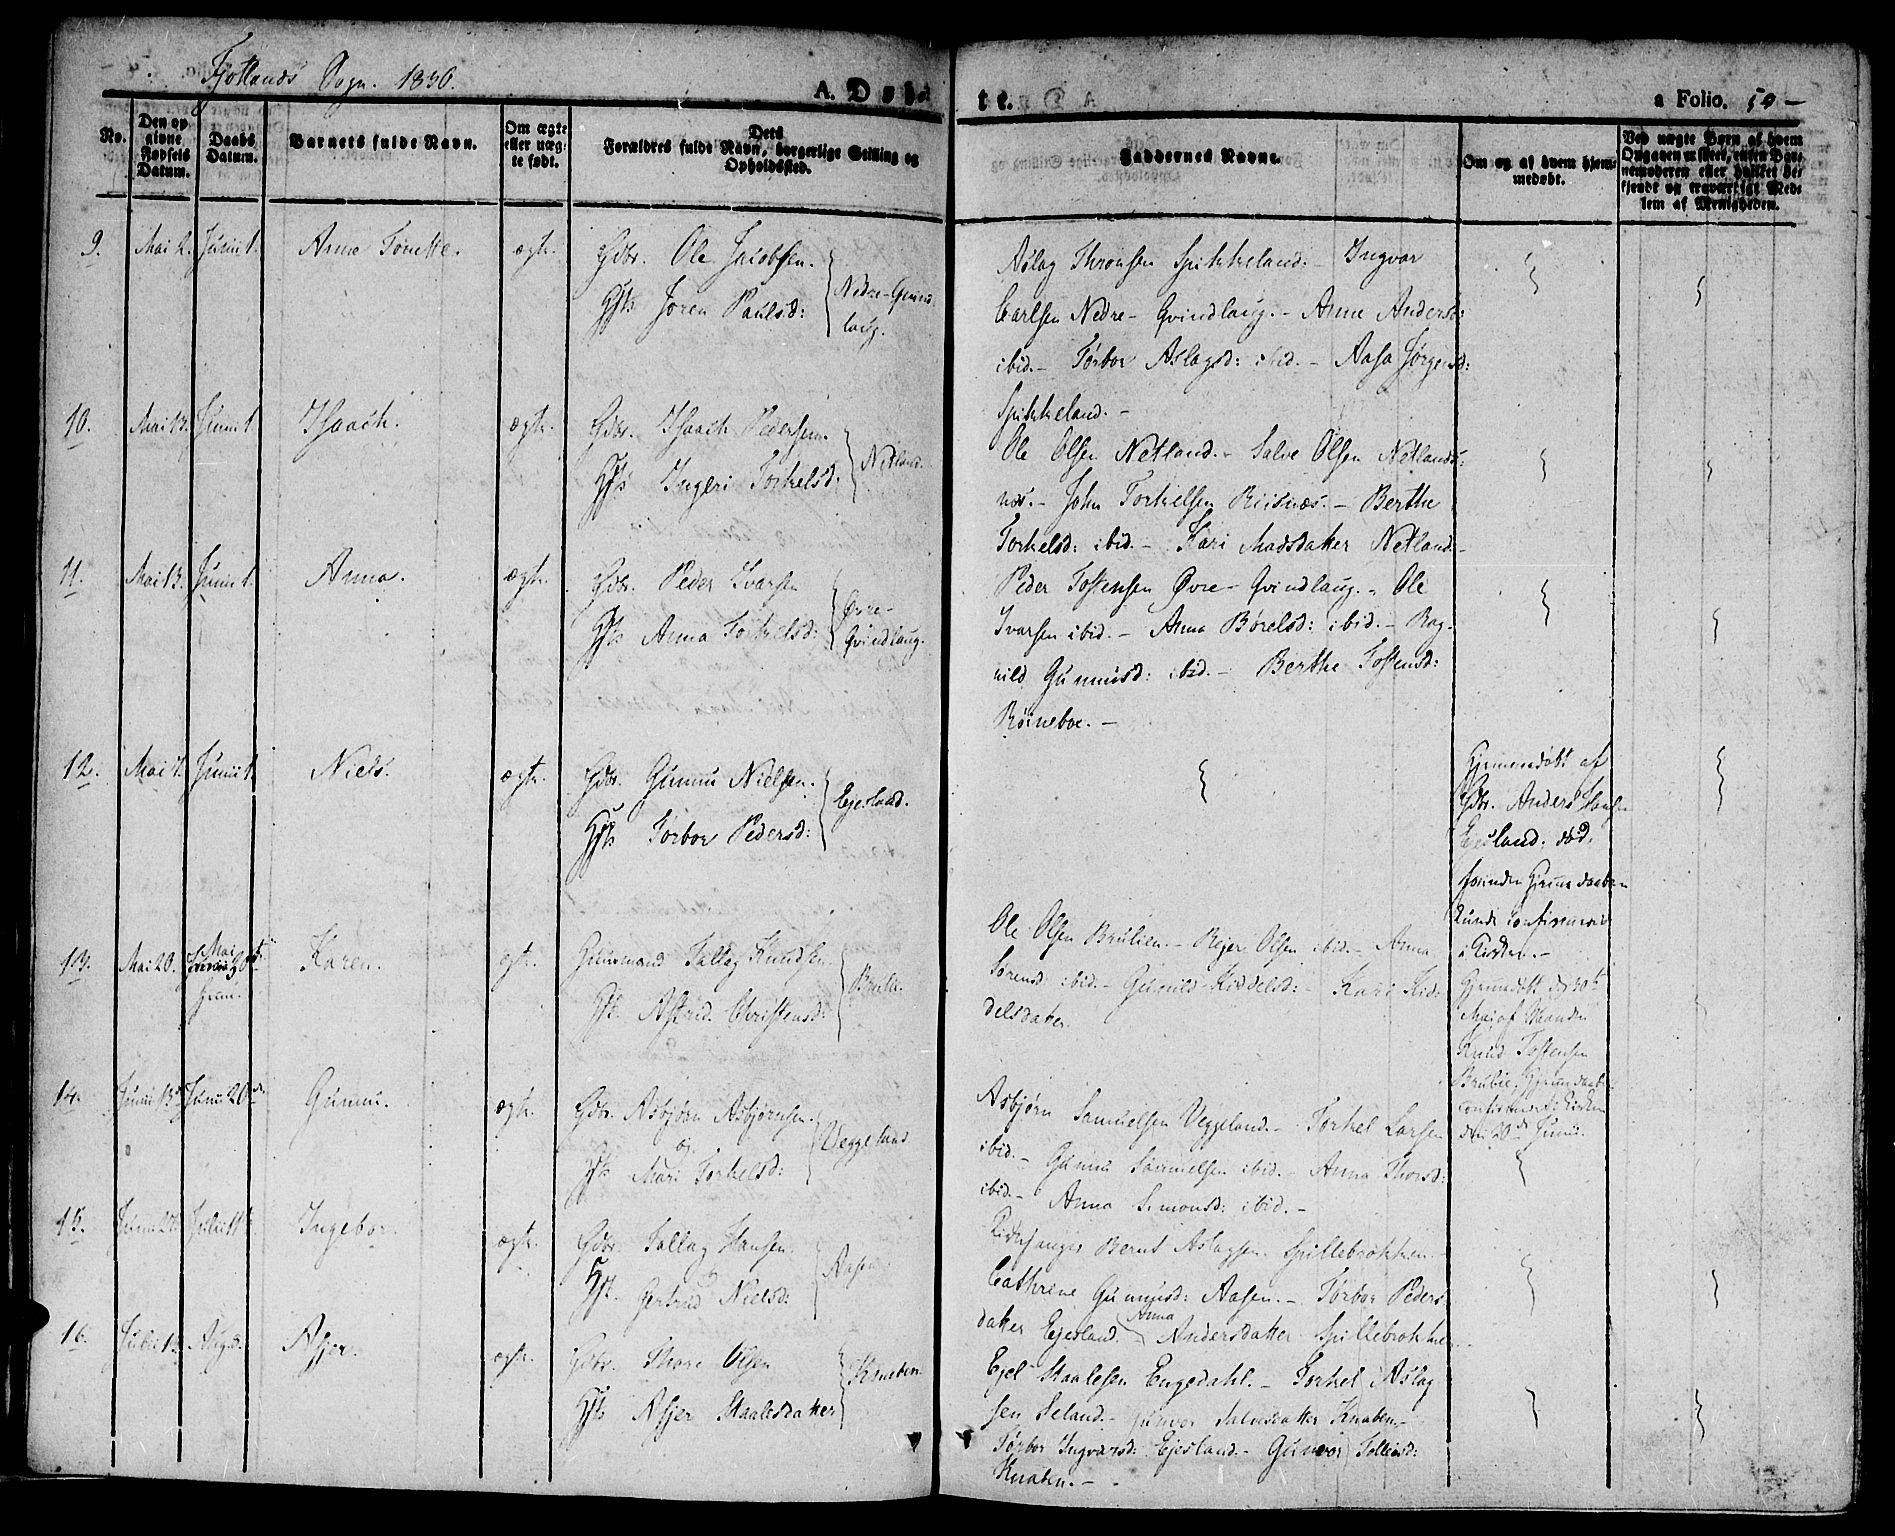 Fjotlands Sogn. 1836.
A. Døbte.
a Folio. 50 -
No.
Den opgivne Fødsels Datum.
Daabs Datum.
Barnets fulde Navn.
Om ægte eller uægte født.
Forældres fulde Navn, Dets borgerlige Stilling og Opholdssted.
Faddernes Navne.
Om og af hvem hjemmedøbt.
Ved uægte Børn af hvem Opgaven er skeet, enten Barnemoderen eller hvilket bekjendt og troværdigt Medlem af Menigheden.
9. Mai 2. Junii 1. Anne Tonette. ægte. Gdbr. Ole Jacobsen.
Hst: Joren Paulsd: Nedre-Gvindlaug.
Aslag Thronsen Spikkeland. - Ingvar
Carlsen Nedre-Gvindlaug. - Anne Andersd:
ibid. - Tørbor Aslagsd: ibid. - Aasa Jørgensd:
Spikkeland. -
10. Mai 13. Junii 1. Isaach. ægte. Gdbr. Isaach Pedersen.
Hst: Ingeri Torkelsd: Netland.
Ole Olsen Netland. - Salve Olsen Netlands-
næs. - John Torkelsen Risnæs. - Berthe
Torkelsd: ibid. - Kari Madsdatter Netland. -
11. Mai 13. Junii 1. Anna. ægte. Gdbr. Peder Ivarsen
Hst: Anna Torkelsd: Øvre-Gvindlaug.
Peder Tostensen Øvre-Gvindlaug. - Ole
Ivarsen ibid. - Anna Børelsd: ibid. - Rag-
nild Gunnusd: ibid. - Berthe Tostensd:
Røineboe. -
12. Mai Junii 1. Niels. ægte. Gdbr. Gunnu Nielsen.
Hst: Tørbor Pedersd: Ejesland.
Hjemmedøbt af
Gdbr. Anders Hansen
Ejesland. død,
forinden Hjemmedaaben
kunde confirmeres
i Kirken. -
13. Mai 20. Karen. ægte. Huusmand Tallag Knudsen
Hst. Astrid Christensd:
Ole Olsen Brulien. - Rejer Olsen ibid. - Anna
Sørensd: ibid. - Gunild Kiddelsd: - Kari Kid-
delsdatter.
Hjemmedøbt den 30t
Mai af Manden
Knud Tostensen
Brulie, Hjemmedaaben
confirmeret i Kirken
den 20de Junii.
14. Junii 13. Junii 20de Gunnu. ægte. Gdbr. Asbjørn Asbjørnsen
og
Hst: Mari Torkelsd: Veggeland
Asbjørn Samuelsen Veggeland. - Torkel Larsen
ibid. - Gunnu Samuelsen ibid. - Anna Thorsd:
ibid. - Anna Simonsd: ibid. -
15. Junii Julii Ingebor. ægte. Gdbr. Tallag Hansen.
Hst. Gertrud Nielsd: Aasen.
Kirkesanger Bernt Aslagsen Spillebrokken -
Cathrine Gunnusd: Aasen. - Tørbor Peders-
datter Ejesland. Anna Andersdatter Spillebrokken -
16. Julii Aug. Asjer. ægte. Gdbr. Thore Olsen
Hst: Asjer Staalesdatter Knaben
Ejel Staalesen Engedahl. - Torkel Aslag-
sen Seland. - Gunvor Salvesdatter Knaben. -
Tørbor Ingvarsd: Ejesland. - Gunvor Tollevsd:
Knaben. -